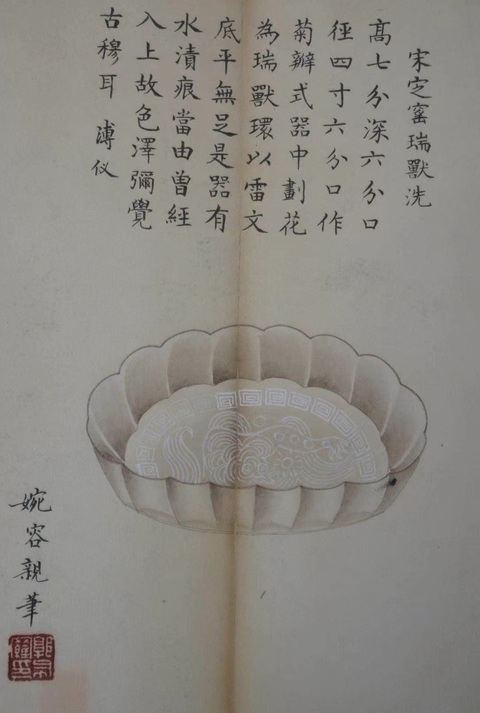 宋定窰瑞獸洗
髙七分深六分口
径四寸六分口作
菊瓣式器中劃花
為瑞獸環以雷文
底平無足是器有
水漬痕當由曾經
入上故色澤彌覺
古穆耳 溥仪
婉容親筆